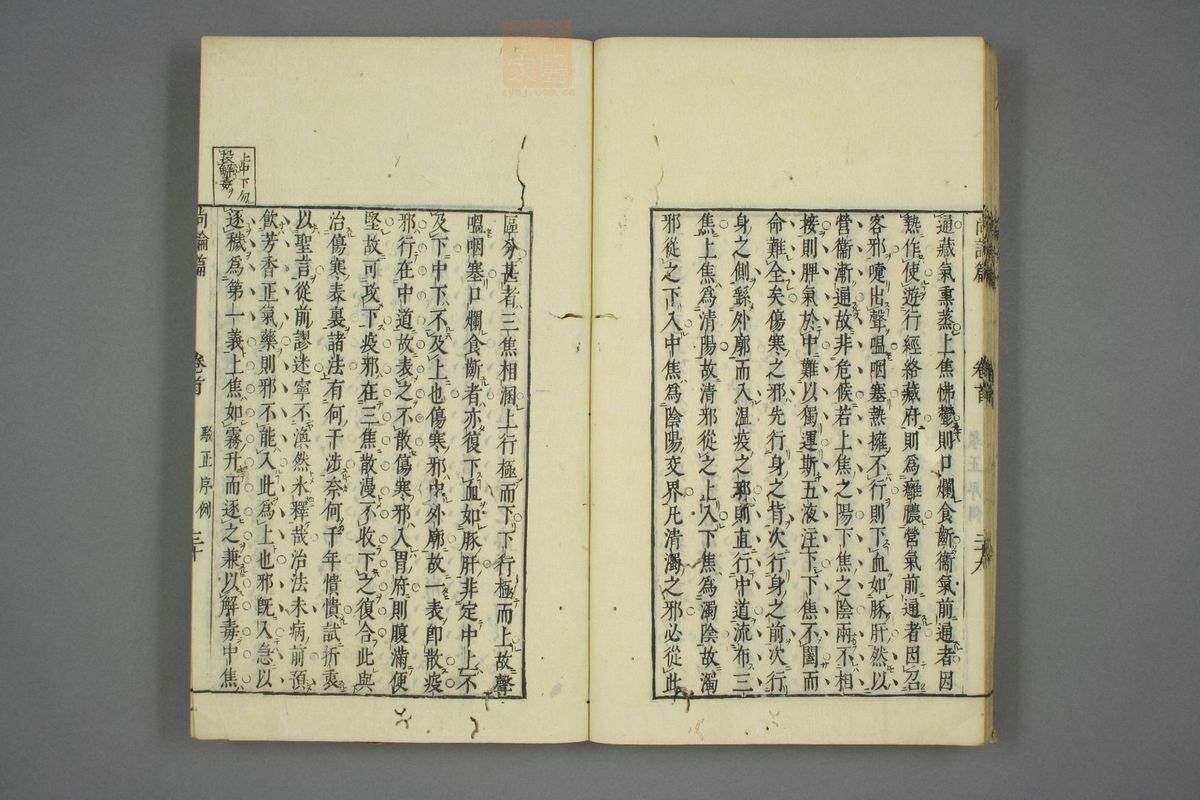 通藏氣熏蒸上焦怫鬱則口爛食齗衞氣前通者因
熱作使遊行經絡藏府則爲癰膿營氣前通者因召
客邪嚏出聲嗢咽塞熱擁不行則下血如豚肝然以
營衞漸通故非危候若上焦之陽下焦之陰兩不相
接則脾氣於中難以獨運斯五液注下下焦不闔而
命難全矣傷寒之邪先行身之背次行身之前次行
身之側繇外廓而入温疫之邪則直行中道流布三
焦上焦爲清陽故清邪從之上入下焦爲濁陰故濁
邪從之下入中焦爲陰陽交界凡清濁之邪必從此
尚論篇
卷首
區分甚者三焦相溷上行極而下下行極而上故聲
嗢咽塞口爛食齗者亦復下血如豚肝非定中上不
及下中下不及上也傷寒邪中外廓故一表卽散疫
邪行在中道故表之不散傷寒邪入胃府則腹滿便
堅故可攻下疫邪在三焦散漫不收下之復合此與
治傷寒表裏諸法有何干涉奈何千年憒憒試折衷
以聖言從前謬迷寧不渙然氷釋哉治法未病前預
飲芳香正氣藥則邪不能入此爲上也邪旣入急以
逐穢爲第一義上焦如霧升而逐之兼以解毒中焦
尚論篇
卷首
駁正序例
三十
上中下勿
投解毒